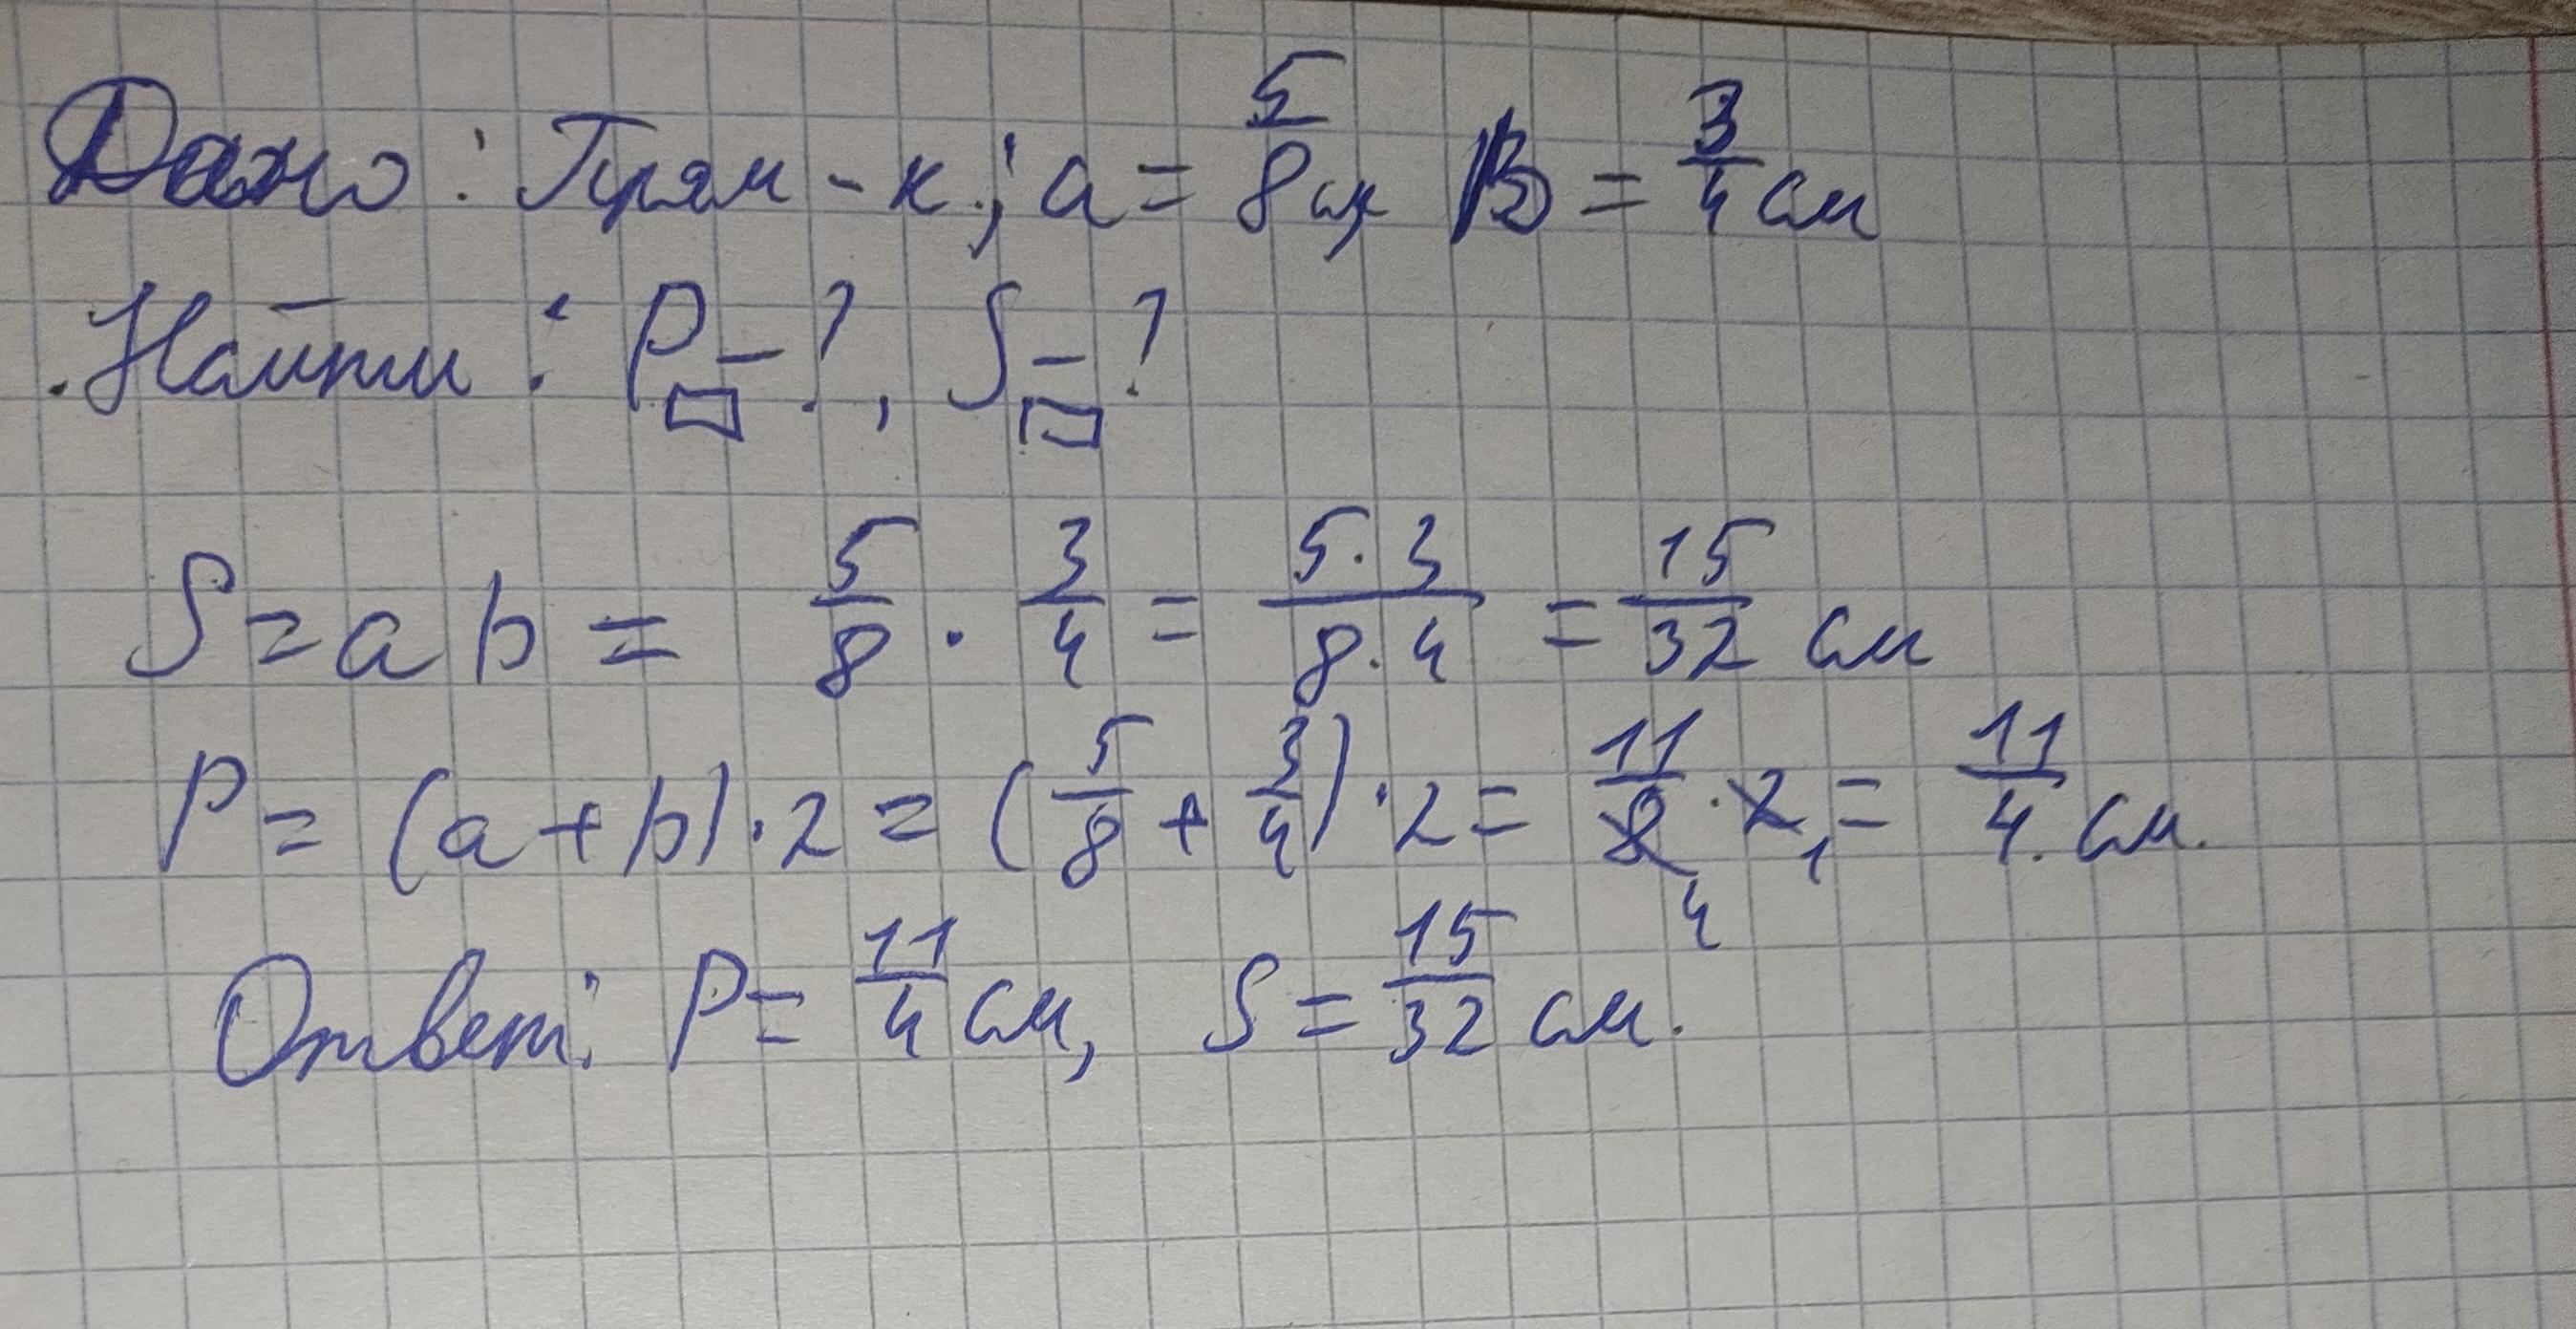 Дано: Прям-к.; a = 5/8 см, B = 3/4 см
Найти: P▭ - ?, S▭ - ?
S = a b = 5/8 · 3/4 = 5·3/8·4 = 15/32 см
P = (a+b)·2 = (5/8 + 3/4)·2 = 11/8 4 · 2 1 = 11/4 см.
Ответ: P = 11/4 см, S = 15/32 см.